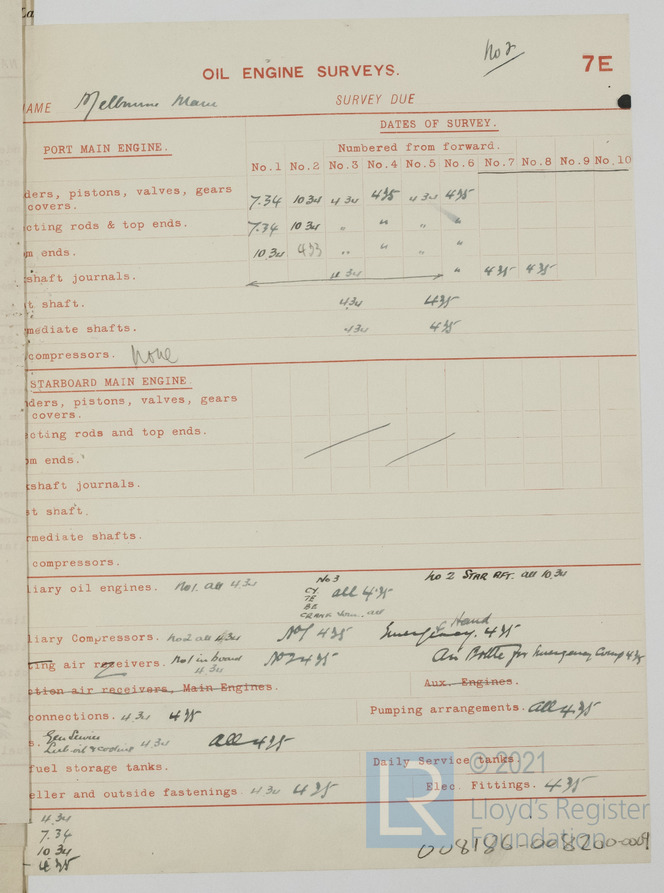 No 2
OIL ENGINE SURVEYS.
7E
AME Melbourne Maru SURVEY DUE
DATES OF SURVEY.
PORT MAIN ENGINE. Numbered from forward.
No.1 No.2 No.3 No.4 No.5 No.6 No.7 No.8 No.9 No.10
ders, pistons, valves, gears
covers. 7.34 10 34 4 34 4 35 4 34 4 35
cting rods & top ends. 7.34 10 34 " " " "
m ends. 10 34 4 33 " " " "
shaft journals. 4 34 " 4 35 4 35
t shaft. 4 34 4 35
mediate shafts. 4 34 4 35
compressors. None
STARBOARD MAIN ENGINE
ders, pistons, valves, gears
covers.
cting rods and top ends.
m ends.
kshaft journals.
st shaft.
rmediate shafts.
compressors.
liary oil engines. No 1. all 4.34 No 3 all 4.35 No 2 STAR AFT. all 10.34
CY.
TE
BE
CRANK all
liary Compressors. No 2 all 4.34 No 1 4 35 Emergency & Hand 4.35
ting air receivers. No 1 inboard 4.34 No 2 4 35 Air Bottle for Emergency Comp 4 35
ction air receivers, Main Engines. Aux. Engines.
connections. 4 34 4 35 Pumping arrangements. all 4.35
s. Gen Service
Lub oil & cooling 4 34 all 4 35
fuel storage tanks. Daily Service tanks.
eller and outside fastenings. 4 34 4 35 Elec. Fittings. 4 35
4.34
7.34
10 34
4.35
© 2021
Lloyd's Register
Foundation
008186-008200-0009